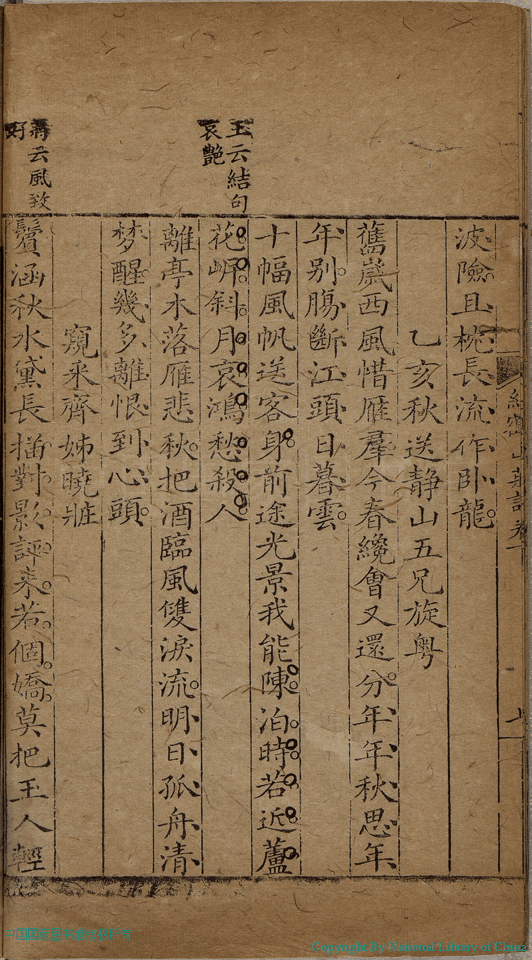 波險且枕長流作卧龍
乙亥秋送静山五兄旋粤
舊歲西風惜雁羣今春纔會又還分年年秋思年
年别腸斷江頭日暮雲
十幅風帆送客身前途光景我能陳泊時若近蘆
花岍斜月哀鴻愁殺人
離亭水落雁悲秋把酒臨風雙淚流明日孤舟清
梦醒幾多離恨到心頭
窺采齊姊曉粧
鬢涵秋水黛長描對影評来若個嬌莫把玉人輕
王云結句
哀艷
蔣云風致
好
Copyright By National Library of China